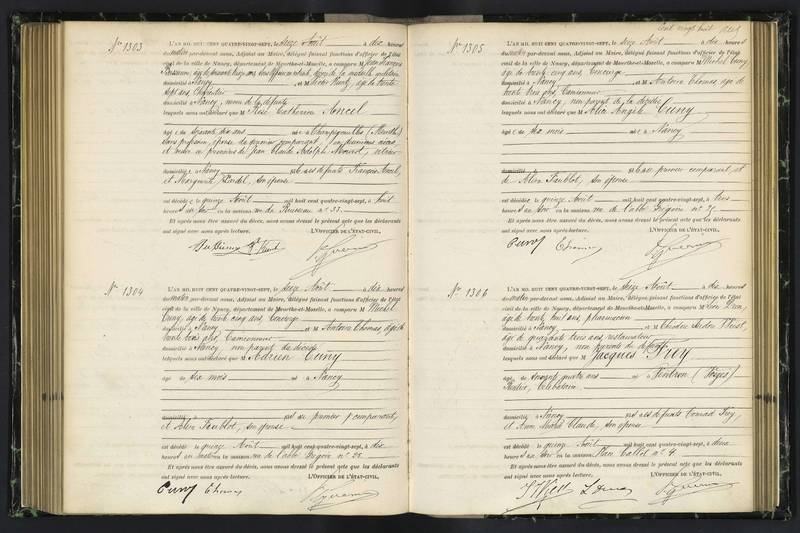 Nº 1303
L'AN MIL HUIT CENT QUATRE-VINGT-SEPT, le seize Août à dix heures
du matin par-devant nous, Adjoint au Maire, délégué faisant fonctions d'officier de l'état
civil de la ville de Nancy, département de Meurthe-et-Moselle, a comparu M Jean
domicilié à Nancy et M
sept ans, Charpentier
domicilié à Nancy, de la défunte
lesquels nous ont déclaré que M Rose Catherine Ancel
âgé e de soixante dix ans né e à Champigneulles (Meurthe)
sans profession, épouse de
et veuve en premières de Jean Claude Adolphe
domicilié e à Nancy fille des défunts François Ancel,
et Marguerite, son épouse
est décédé e le quinze Août mil huit cent quatre-vingt-sept, à huit
heures du soir en la maison rue du Ruisseau nº 33.
Et après nous être assuré du décès, nous avons dressé le présent acte que les déclarants
ont signé avec nous après lecture. L'OFFICIER DE L'ÉTAT-CIVIL,
Nº 1304
L'AN MIL HUIT CENT QUATRE-VINGT-SEPT, le seize Août à dix heures
du matin par-devant nous, Adjoint au Maire, délégué faisant fonctions d'officier de l'état
civil de la ville de Nancy, département de Meurthe-et-Moselle, a comparu M Michel
Cuny, âgé de trente cinq ans, Concierge
domicilié à Nancy et M Antoine Thomas, âgé de
trente trois ans, Camionneur
domicilié à Nancy non parent du décédé
lesquels nous ont déclaré que M Adrien Cuny
âgé de dix mois né à Nancy
domicilié fils du premier comparant,
et Alix Faublot, son épouse
est décédé le quinze Août mil huit cent quatre-vingt-sept, à dix
heures du matin en la maison rue de l'abbé Grégoire nº 25.
Et après nous être assuré du décès, nous avons dressé le présent acte que les déclarants
ont signé avec nous après lecture. L'OFFICIER DE L'ÉTAT-CIVIL,
Cuny Thomas
Cent vingt huit
Nº 1305
L'AN MIL HUIT CENT QUATRE-VINGT-SEPT, le seize Août à dix heures
du matin par-devant nous, Adjoint au Maire, délégué faisant fonctions d'officier de l'état
civil de la ville de Nancy, département de Meurthe-et-Moselle, a comparu M Michel Cuny,
âgé de trente cinq ans, Concierge
domicilié à Nancy et M Antoine Thomas, âgé de
trente trois ans, Camionneur
domicilié à Nancy, non parent de la décédée
lesquels nous ont déclaré que M Alix Angèle Cuny
âgé e de dix mois né e à Nancy
domicilié fille du premier comparant, et
de Alix Faublot, son épouse
est décédé e le quinze Août mil huit cent quatre-vingt-sept, à trois
heures du soir en la maison rue de l'abbé Grégoire nº 25.
Et après nous être assuré du décès, nous avons dressé le présent acte que les déclarants
ont signé avec nous après lecture. L'OFFICIER DE L'ÉTAT-CIVIL,
Cuny Thomas
Nº 1306
L'AN MIL HUIT CENT QUATRE-VINGT-SEPT, le seize Août à dix heures
du matin par-devant nous, Adjoint au Maire, délégué faisant fonctions d'officier de l'état
civil de la ville de Nancy, département de Meurthe-et-Moselle, a comparu M Léon
âgé de trente ans, pharmacien
domicilié à Nancy, et M
âgé de quarante trois ans restaurateur
domicilié à Nancy, non parents du défunt
lesquels nous ont déclaré que M Jacques
âgé de soixante quatre ans né à Ventron (Vosges)
Rentier, Célibataire.
domicilié à Nancy fils des défunts Conrad
et Anne Marie Claude, son épouse
est décédé le quinze Août mil huit cent quatre-vingt-sept, à deux
heures du soir en la maison Place Callot nº 4
Et après nous être assuré du décès, nous avons dressé le présent acte que les déclarants
ont signé avec nous après lecture. L'OFFICIER DE L'ÉTAT-CIVIL,